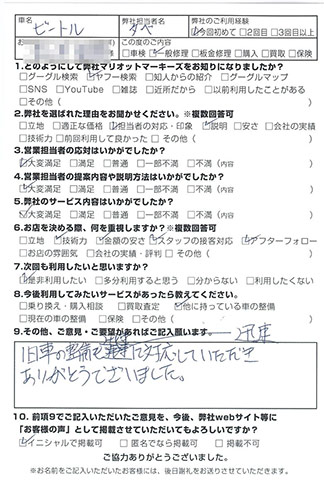 車名 ビートル
弊社担当者名 タベ
弊社のご利用経験
☑今回初めて □2回目 □3回目以上
お
この度のご内容
□車検 ☑一般修理 □板金修理 □購入 □買取 □保険
1.どのようにして弊社マリオットマーキーズをお知りになりましたか?
□グーグル検索 ☑ヤフー検索 □知人からの紹介 □グーグルマップ
□SNS □YouTube □雑誌 □近所だから □以前利用したことがある
□その他( )
2.弊社を選ばれた理由をお聞かせください。※複数回答可
□立地 □適正な価格 ☑担当者の対応・印象 ☑説明 □安さ □会社の実績
□技術力 □前回利用して良かった □その他( )
3.営業担当者の応対はいかがでしたか?
☑大変満足 □満足 □普通 □一部不満 □不満(内容 )
4.営業担当者の提案内容や説明方法はいかがでしたか?
☑大変満足 □満足 □普通 □一部不満 □不満(内容 )
5.弊社のサービス内容はいかがでしたか?
☑大変満足 □満足 □普通 □一部不満 □不満(内容 )
6.お店を決める際、何を重視しますか?※複数回答可
□立地 ☑技術力 ☑金額の安さ ☑スタッフの接客対応 ☑アフターフォロー
□お店の雰囲気 □会社の実績・評判 □その他( )
7.次回も利用したいと思いますか?
☑是非利用したい □多分利用すると思う □分からない □利用したくない
8.今後利用してみたいサービスがあったら教えてください。
□乗り換え・購入相談 □買取査定 ☑他に持っている車の整備
□現在の車の整備 □保険 □その他( )
9.その他、ご意見・ご要望があればご記入願います。 迅速
旧車の整備を に対応していただき
ありがとうございました。
10.前項9でご記入いただいたご意見を、今後、弊社webサイト等に
「お客様の声」として掲載させていただいてもよろしいですか?
☑イニシャルで掲載可 □匿名でなら掲載可 □掲載不可
ご協力ありがとうございました。
※お名前をご記入いただいたお客様には、後日謝礼をお送りさせていただきます。